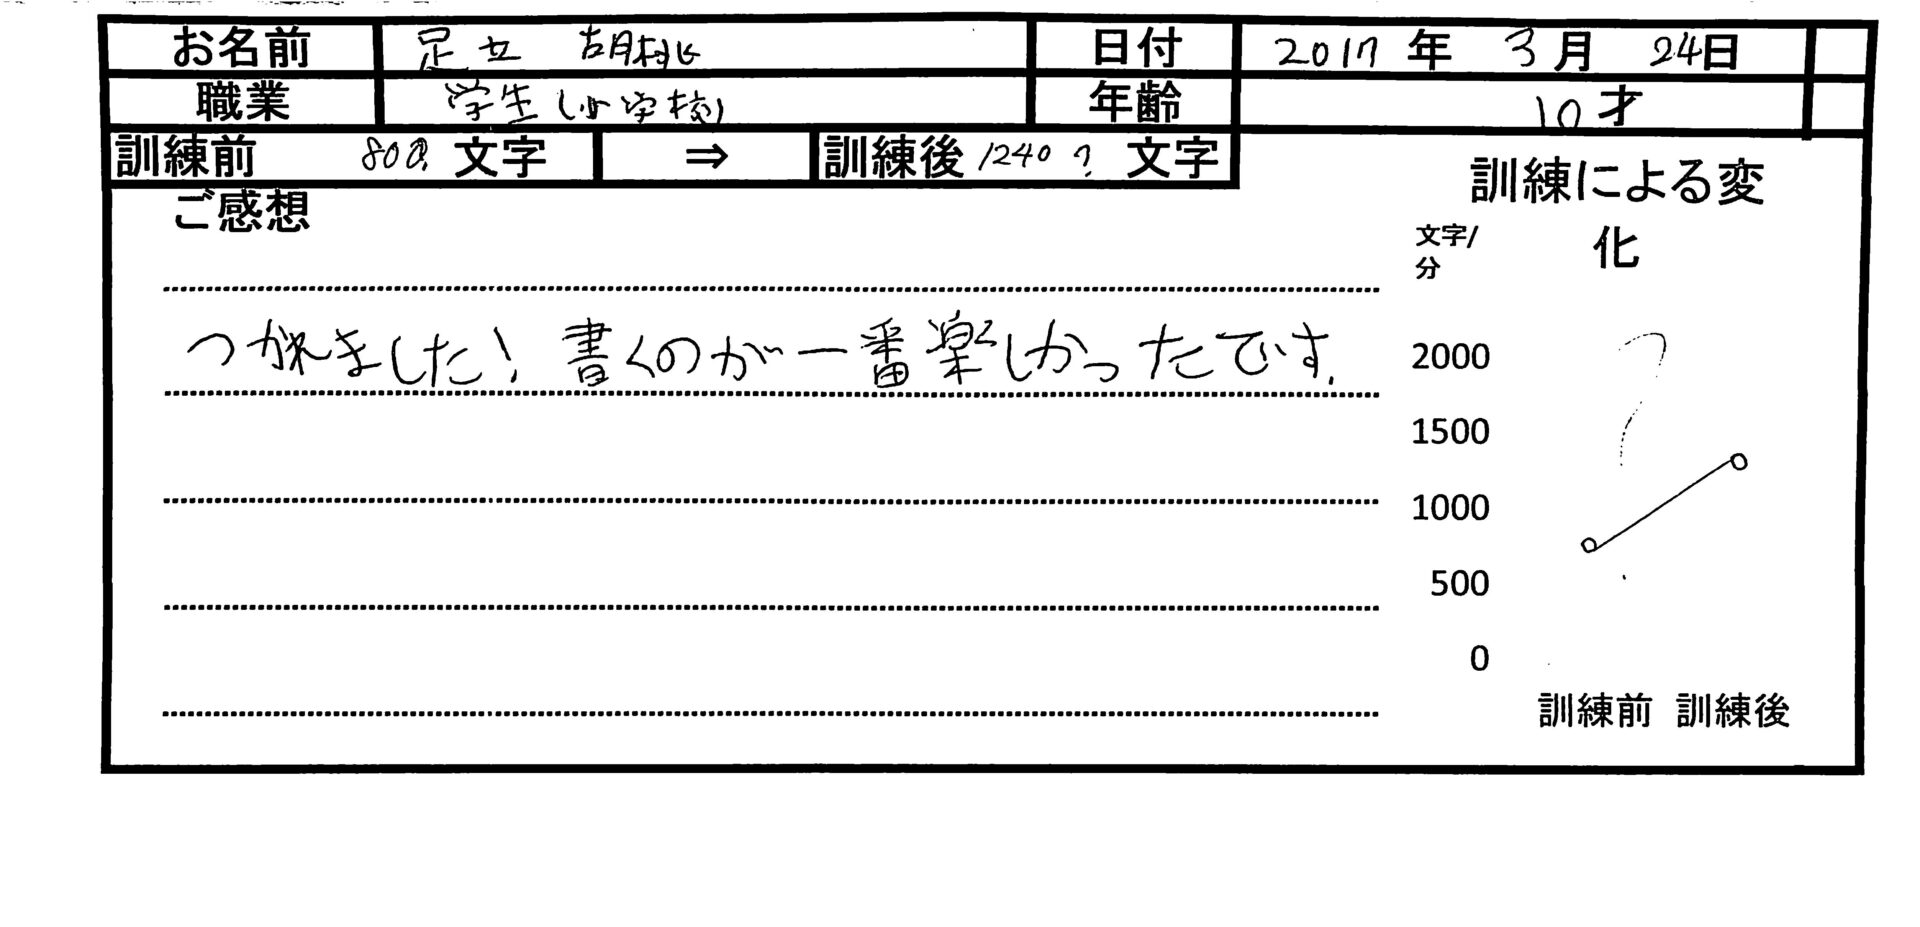 お名前 足立 胡桃 日付 2017 年 3 月 24日
職業 学生(小学校) 年齢 10 才
訓練前 800? 文字 ⇒ 訓練後 1240? 文字
ご感想
つかれました！書くのが一番楽しかったです.
訓練による変
化
文字/
分
2000
1500
1000
500
0
訓練前 訓練後